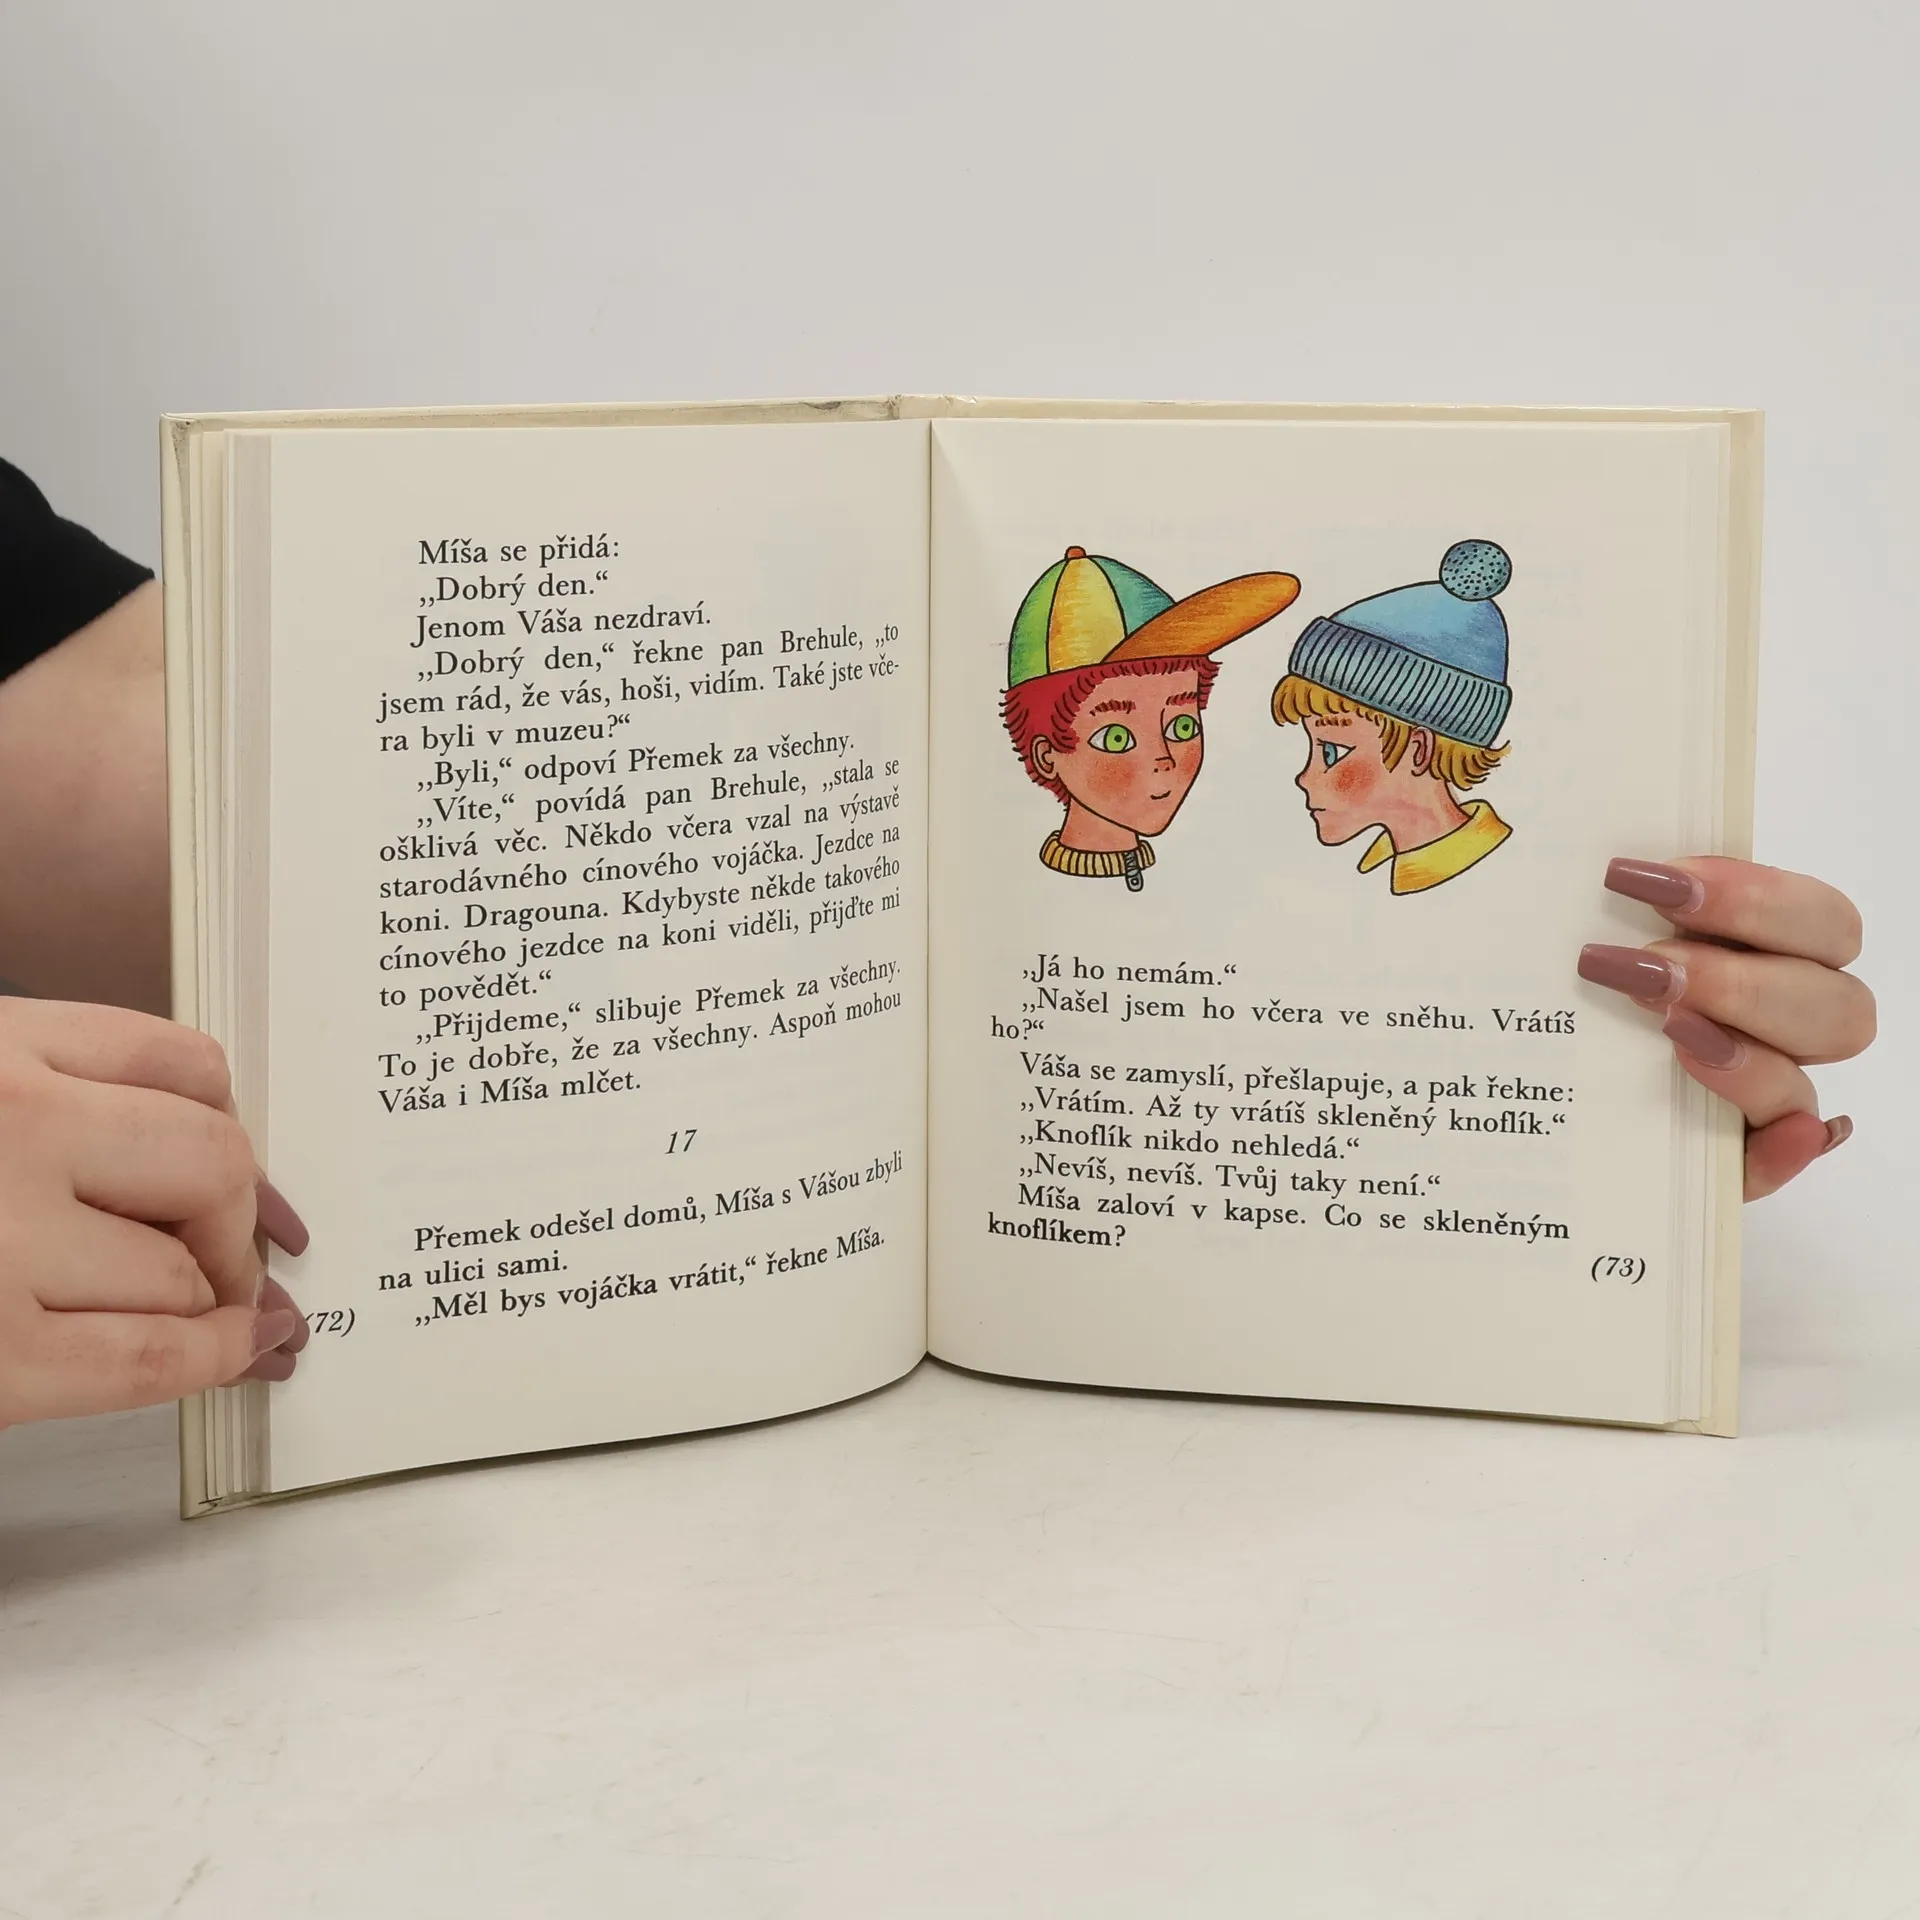 Míša se přidá:
„Dobrý den.“
Jenom Váša nezdraví.
„Dobrý den,“ řekne pan Brehule, „to
jsem rád, že vás, hoši, vidím. Také jste vče-
ra byli v muzeu?“
„Byli,“ odpoví Přemek za všechny.
„Víte,“ povídá pan Brehule, „stala se
ošklivá věc. Někdo včera vzal na výstavě
starodávného cínového vojáčka. Jezdce na
koni. Dragouna. Kdybyste někde takového
cínového jezdce na koni viděli, přijďte mi
to povědět.“
„Přijdeme,“ slibuje Přemek za všechny.
To je dobře, že za všechny. Aspoň mohou
Váša i Míša mlčet.
17
Přemek odešel domů, Míša s Vášou zbyli
na ulici sami.
„Měl bys vojáčka vrátit,“ řekne Míša.
(72)
„Já ho nemám.“
„Našel jsem ho včera ve sněhu. Vrátíš
ho?“
Váša se zamyslí, přešlapuje, a pak řekne:
„Vrátím. Až ty vrátíš skleněný knoflík.“
„Knoflík nikdo nehledá.“
„Nevíš, nevíš. Tvůj taky není.“
Míša zaloví v kapse. Co se skleněným
knoflíkem?
(73)